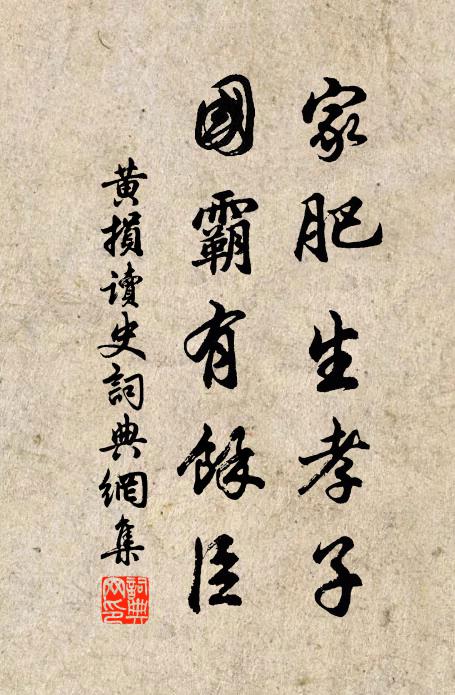 家肥生孝子
國霸有餘臣
黃損讀史詞典網集
詞典網印